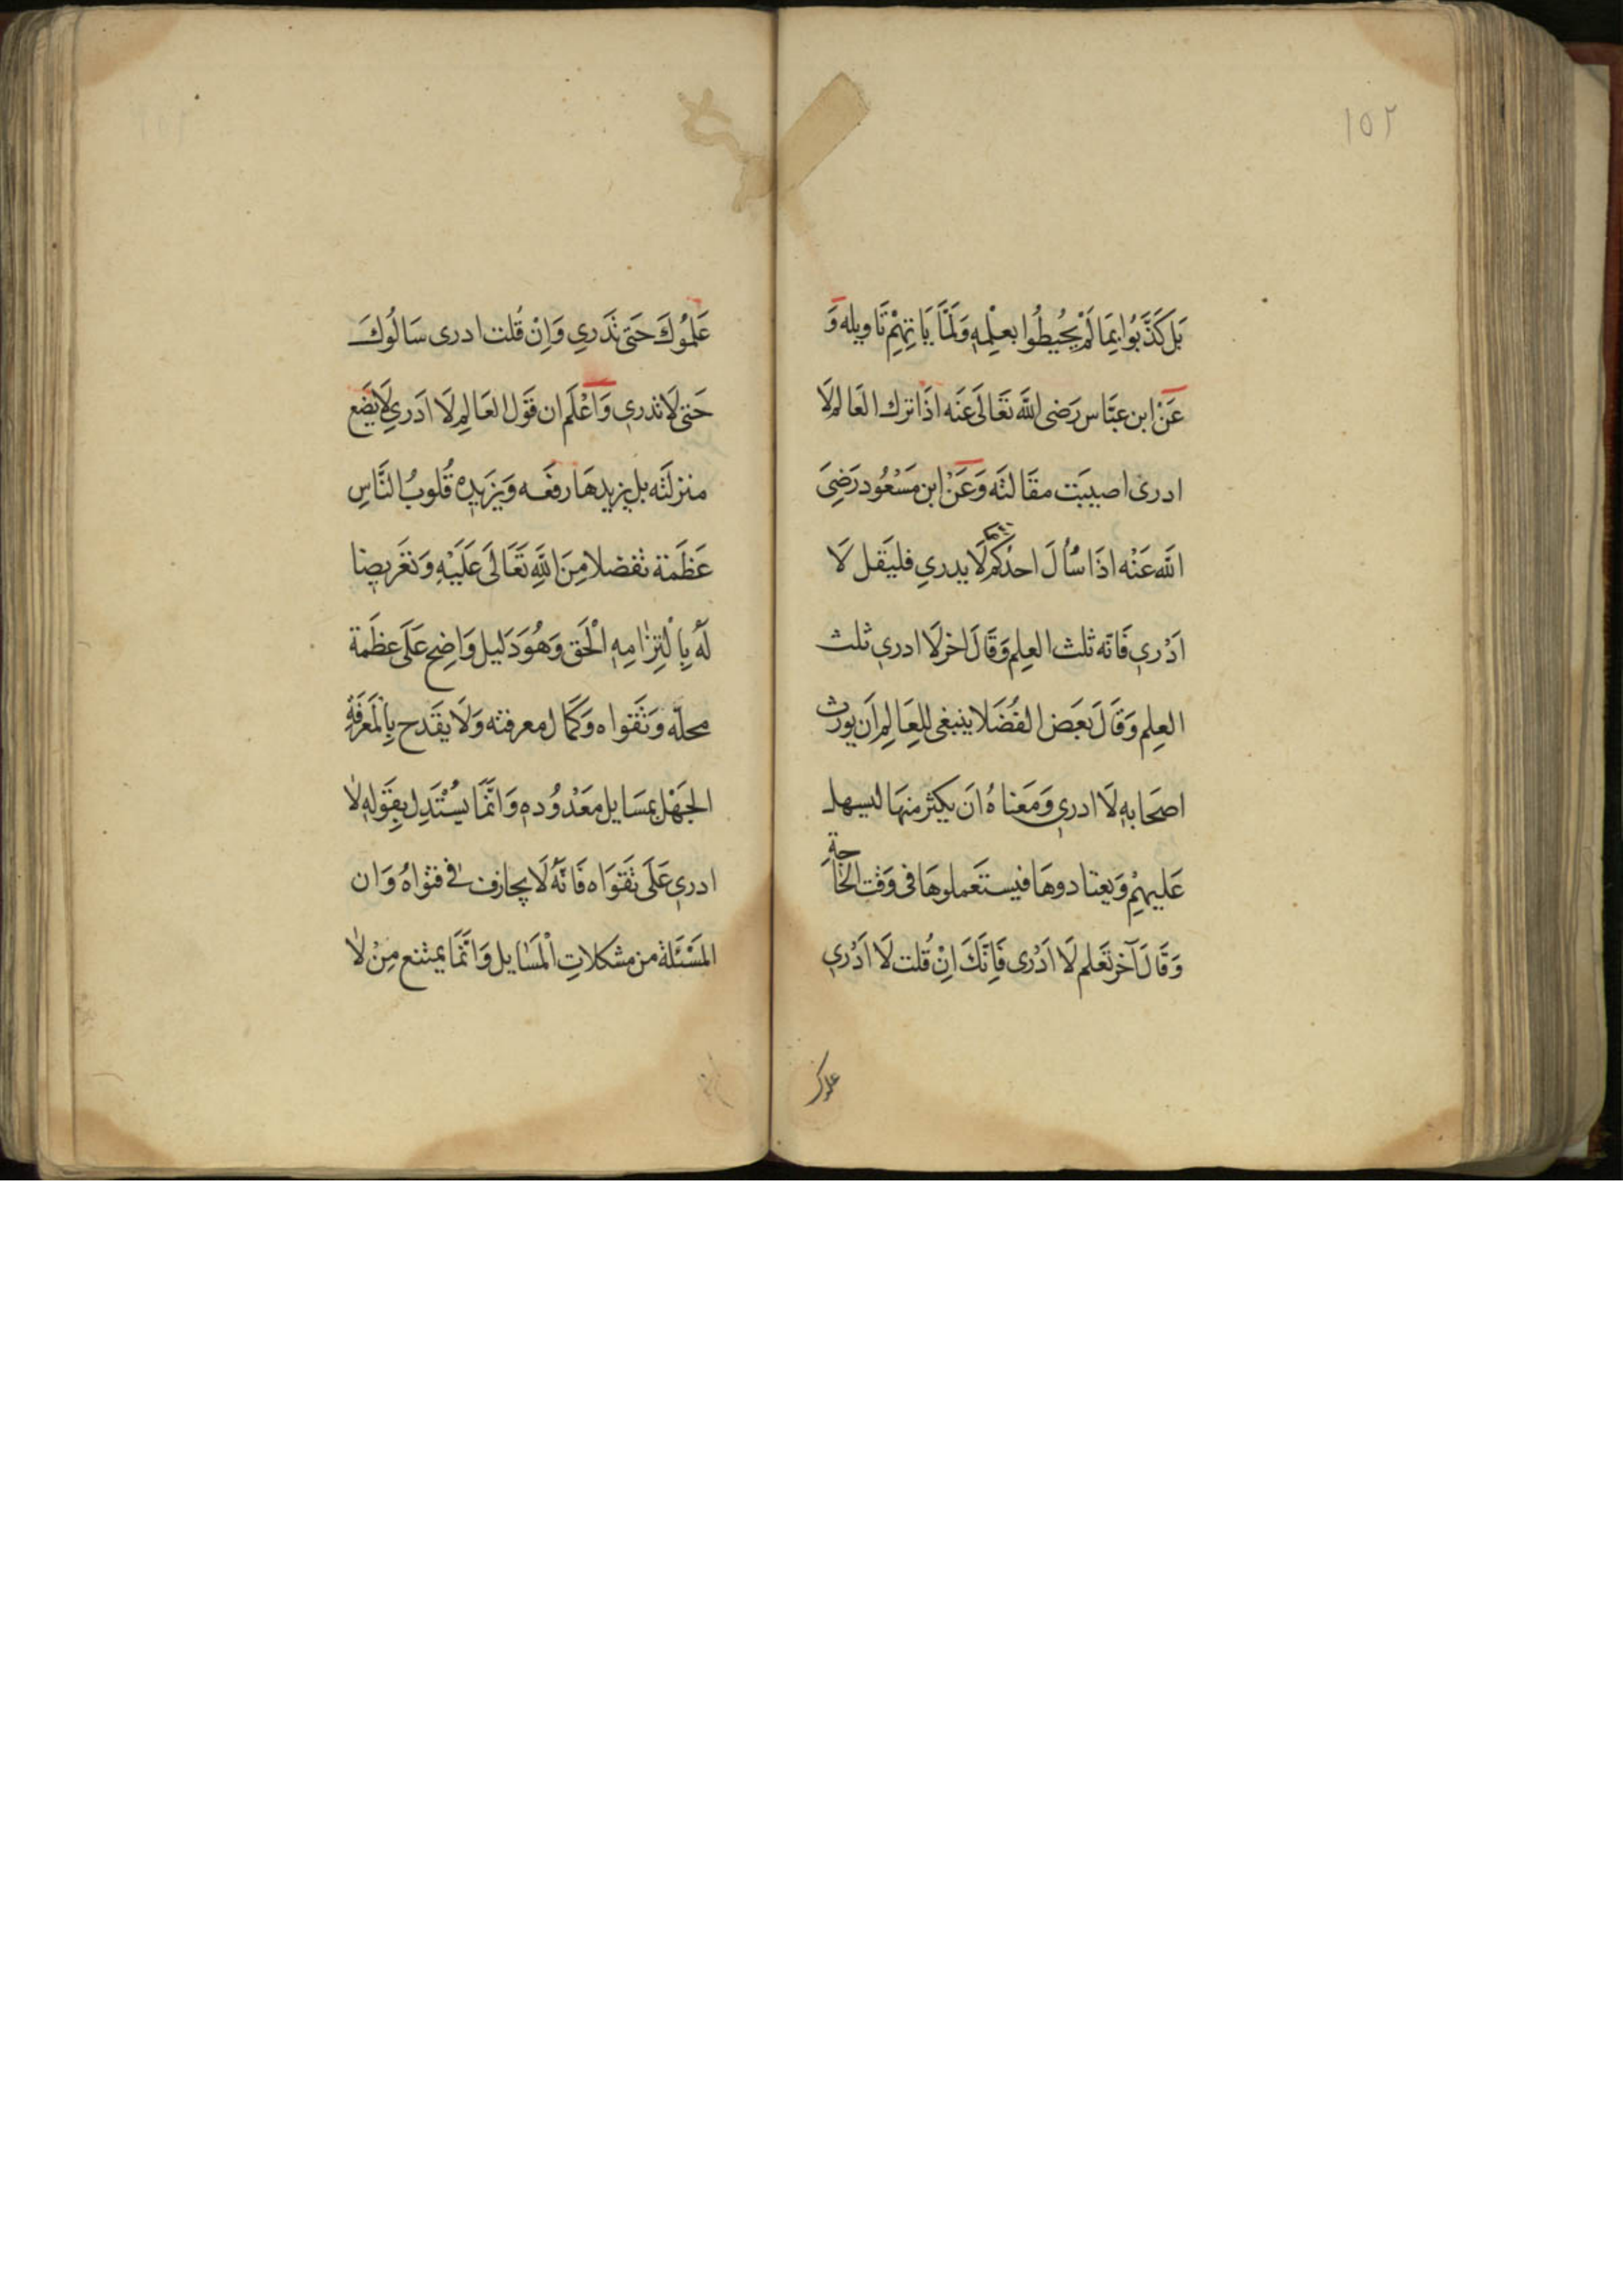 ١٥٢
بَل كَذَّبُوا بِمَا لَمْ يُحِيطُوا بعِلْمِهٖ وَلَمَّا يَاتِهِمْ تَاويله وَ
عَنْ ابن عبَّاس رَضى اللَّه تعَالَى عَنَه اذَا ترك العَالم لَا
ادرى اصيبَت مقَالتَه وَعَنْ ابن مَسْعُود رَضِىَ
اللَّه عَنْه اذَا سُأُلَ احدُكم لَا يدري فليَقل لَا
اَدْرى فَانّه ثلث العِلم وَقَالَ اخر لَا ادرى ثلث
العِلم وَقَالَ بَعَض الفُضَلا ينبغى للعَالِم اَن يورث
اصَحَابهٖ لَا ادرى وَمَعَناهُ ان يكثر منهَا ليسهل
عَليهِمْ وَيعتادوهَا فيستَعملوهَا فى وَقت الحَاجة
وَقَالَ آخر تَعَلم لَا اَدْرى فَاِنَّكَ اِنْ قُلت لَا اَدْرى
علموك
عَلمُوكَ حَتى تَدَري وَاِنْ قُلت ادرى سَالُوكَ
حَتى لَا تدرى وَاعْلَم ان قَول العَالِم لَا ادَري لَا يَضَع
منزلَتَه بل يزيدهَا رفعَه وَيَزيده قُلوبُ النَّاسِ
عَظَمَة تفضلا مِنَ اللَّهِ تَعَالَى عَلَيْهِ وَتعَريضا
لَهُ بِالْتِزَامِهٖ الْحَق وَهُوَ دَليل وَاضِح عَلَى عظَمة
محلّه وَتَقواه وَكَمَال معرفته وَلَا يقَدح بِالْمَعَرفَةِ
الجَهْل بمسَايل معَدُودهٖ وَانَّمَا يُسْتَدِل بِقَولهٖ لَا
ادرى عَلَى تَقوَاه فَانَّهُ لَا يجازف فى فتواهُ وَان
المَسْئَلة من مشكلاتِ الْمَسَايل وَانَّمَا يمتنع مِنْ لَا